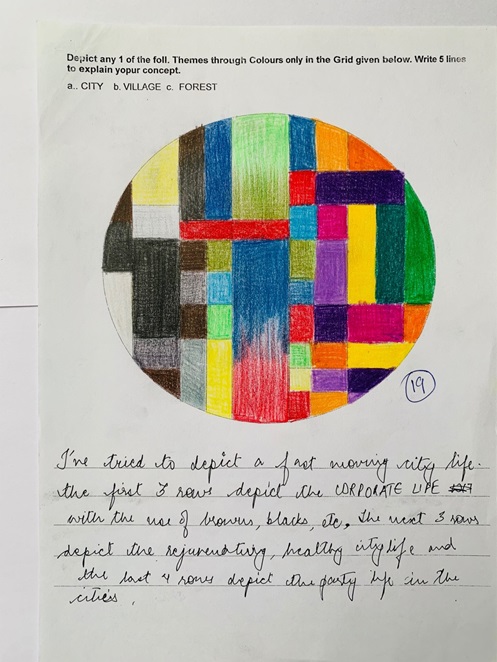 Depict any 1 of the foll. Themes through Colours only in the Grid given below. Write 5 lines
to explain yopur concept.
a.. CITY b. VILLAGE c. FOREST
19
I've tried to depict a fast moving city life.
the first 3 rows depict the CORPORATE LIFE
with the use of browns, blacks, etc. The next 3 rows
depict the rejuvenating, healthy citylife and
the last 4 rows depict the party life in the
cities.